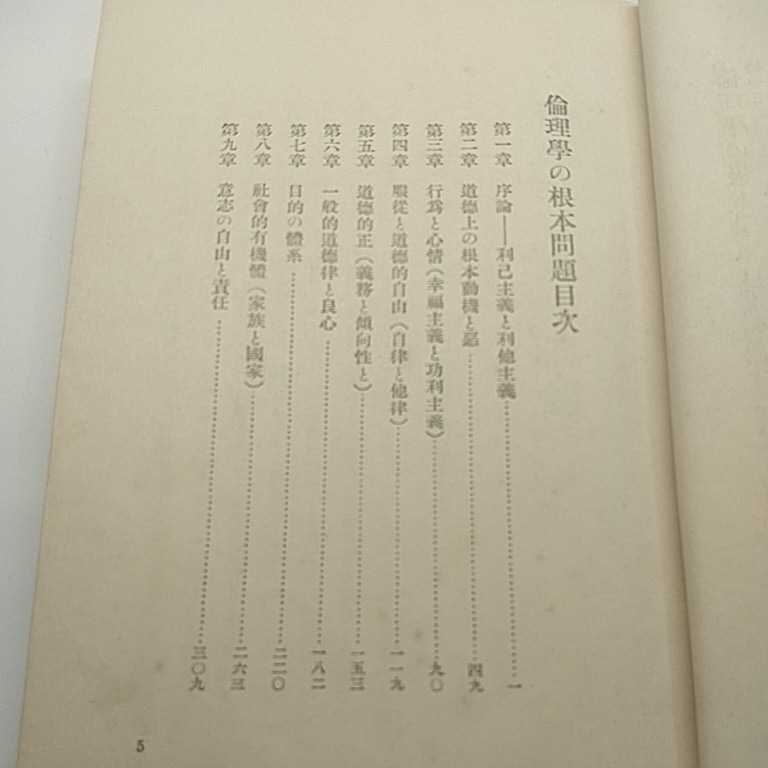 倫理學の根本問題目次
第一章 序論――利己主義と利他主義……一
第二章 道德上の根本動機と惡……四九
第三章 行爲と心情(幸福主義と功利主義)……九〇
第四章 服從と道德的自由(自律と他律)……一一九
第五章 道德的正(義務と傾向性と)……一五三
第六章 一般的道德律と良心……一八二
第七章 目的の體系……二二〇
第八章 社會的有機體(家族と國家)……二六三
第九章 意志の自由と責任……三〇九
5